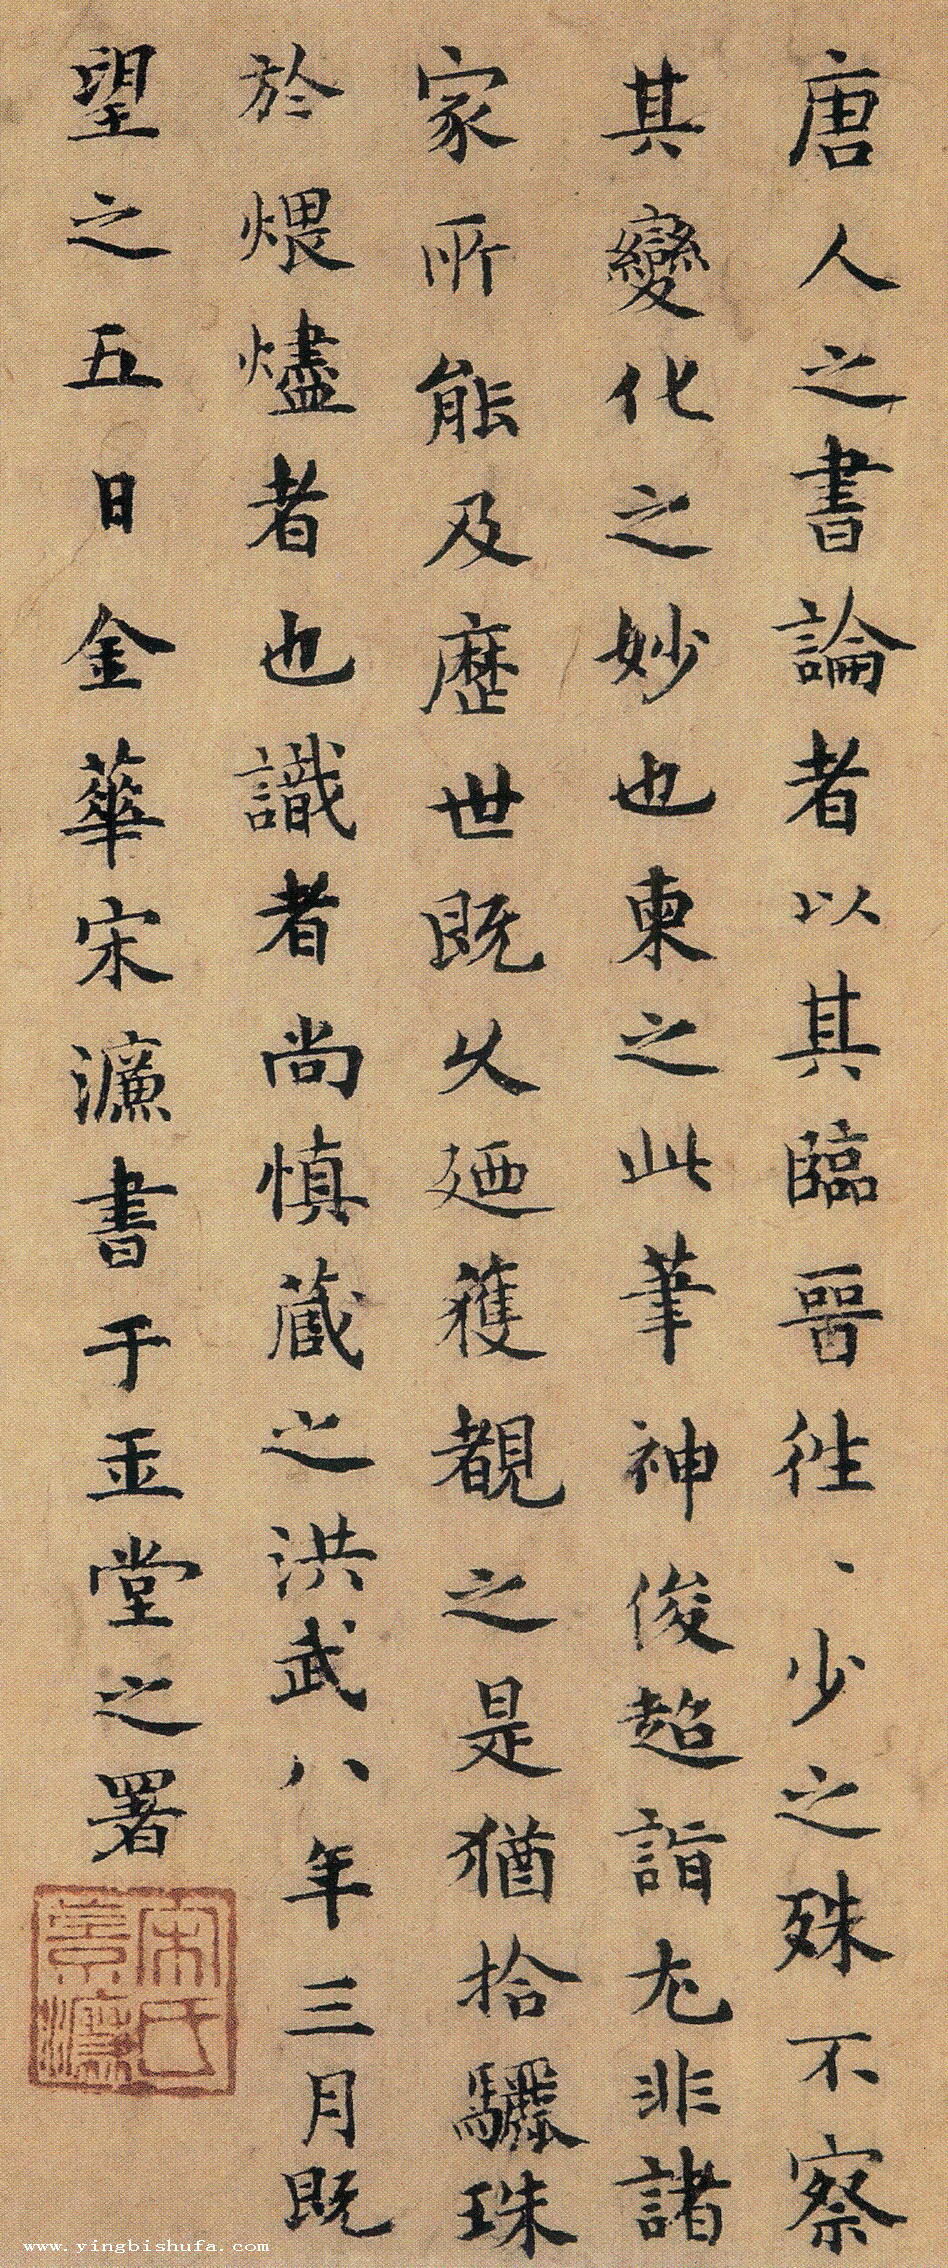 唐人之書論者以其臨晉往〻少之殊不察
其變化之妙也柬之此筆神俊超詣尤非諸
家所能及歷世既久廼獲覩之是猶拾驪珠
於煨燼者也識者尚慎藏之洪武八年三月既
望之五日金華宋濂書于玉堂之署
宋氏景濂
www.yingbishufa.com